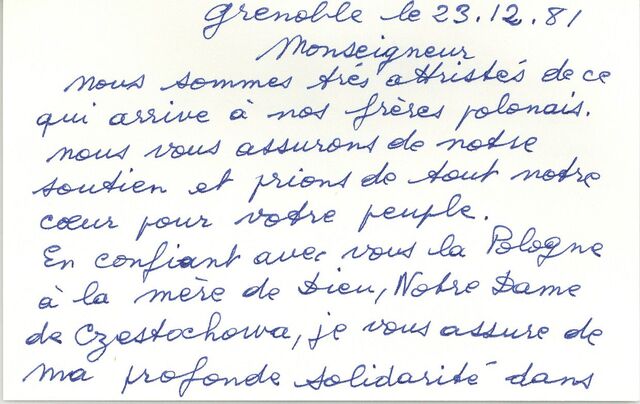 Grenoble le 23.12.81
Monseigneur
Nous sommes très attristés de ce
qui arrive à nos frères polonais.
Nous vous assurons de notre
soutien et prions de tout notre
cœur pour votre peuple.
En confiant avec vous la Pologne
à la mère de Dieu, Notre Dame
de Czestochowa, je vous assure de
ma profonde solidarité dans